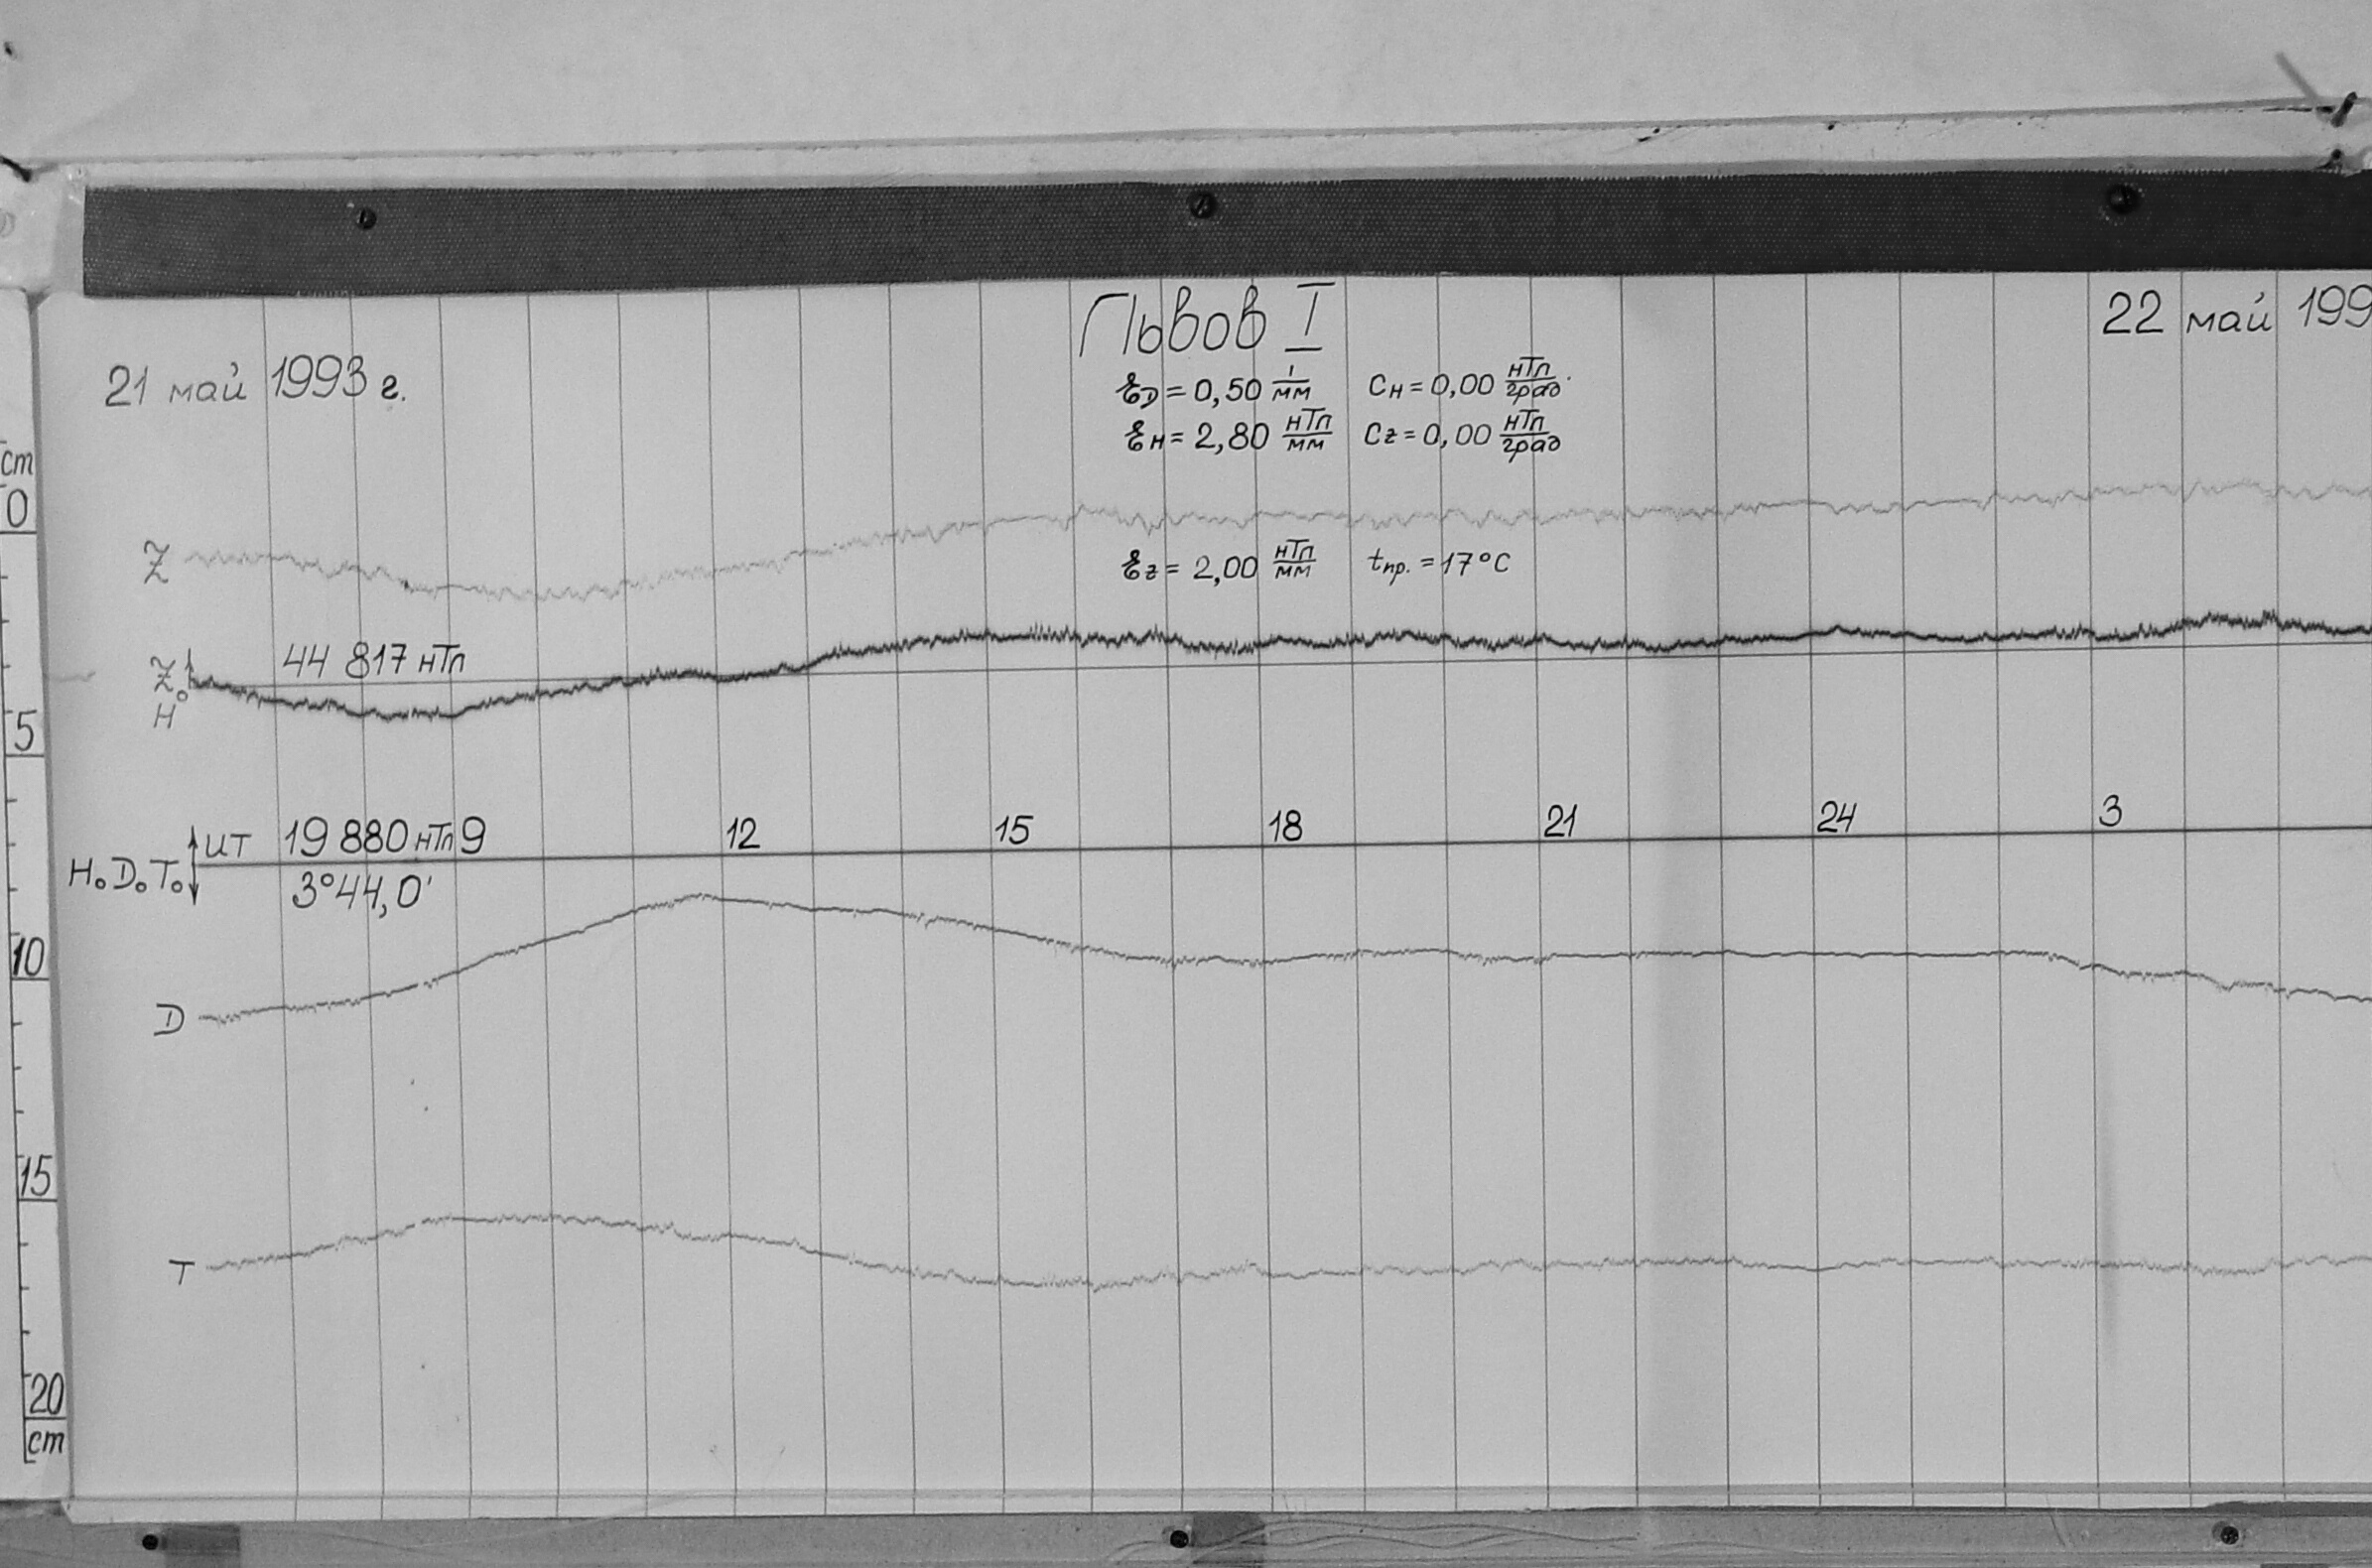 Львов I
22 май 199
21 май 1993 г.
εD = 0,50 ′/мм CH = 0,00 нТл/град.
εH = 2,80 нТл/мм CZ = 0,00 нТл/град
cm
0
Z
εZ = 2,00 нТл/мм tпр. = 17°C
Z₀ 44 817 нТл
H
5
UT 19 880 нТл 9 12 15 18 21 24 3
H₀D₀T₀
3°44,0′
10
D
15
T
20
cm